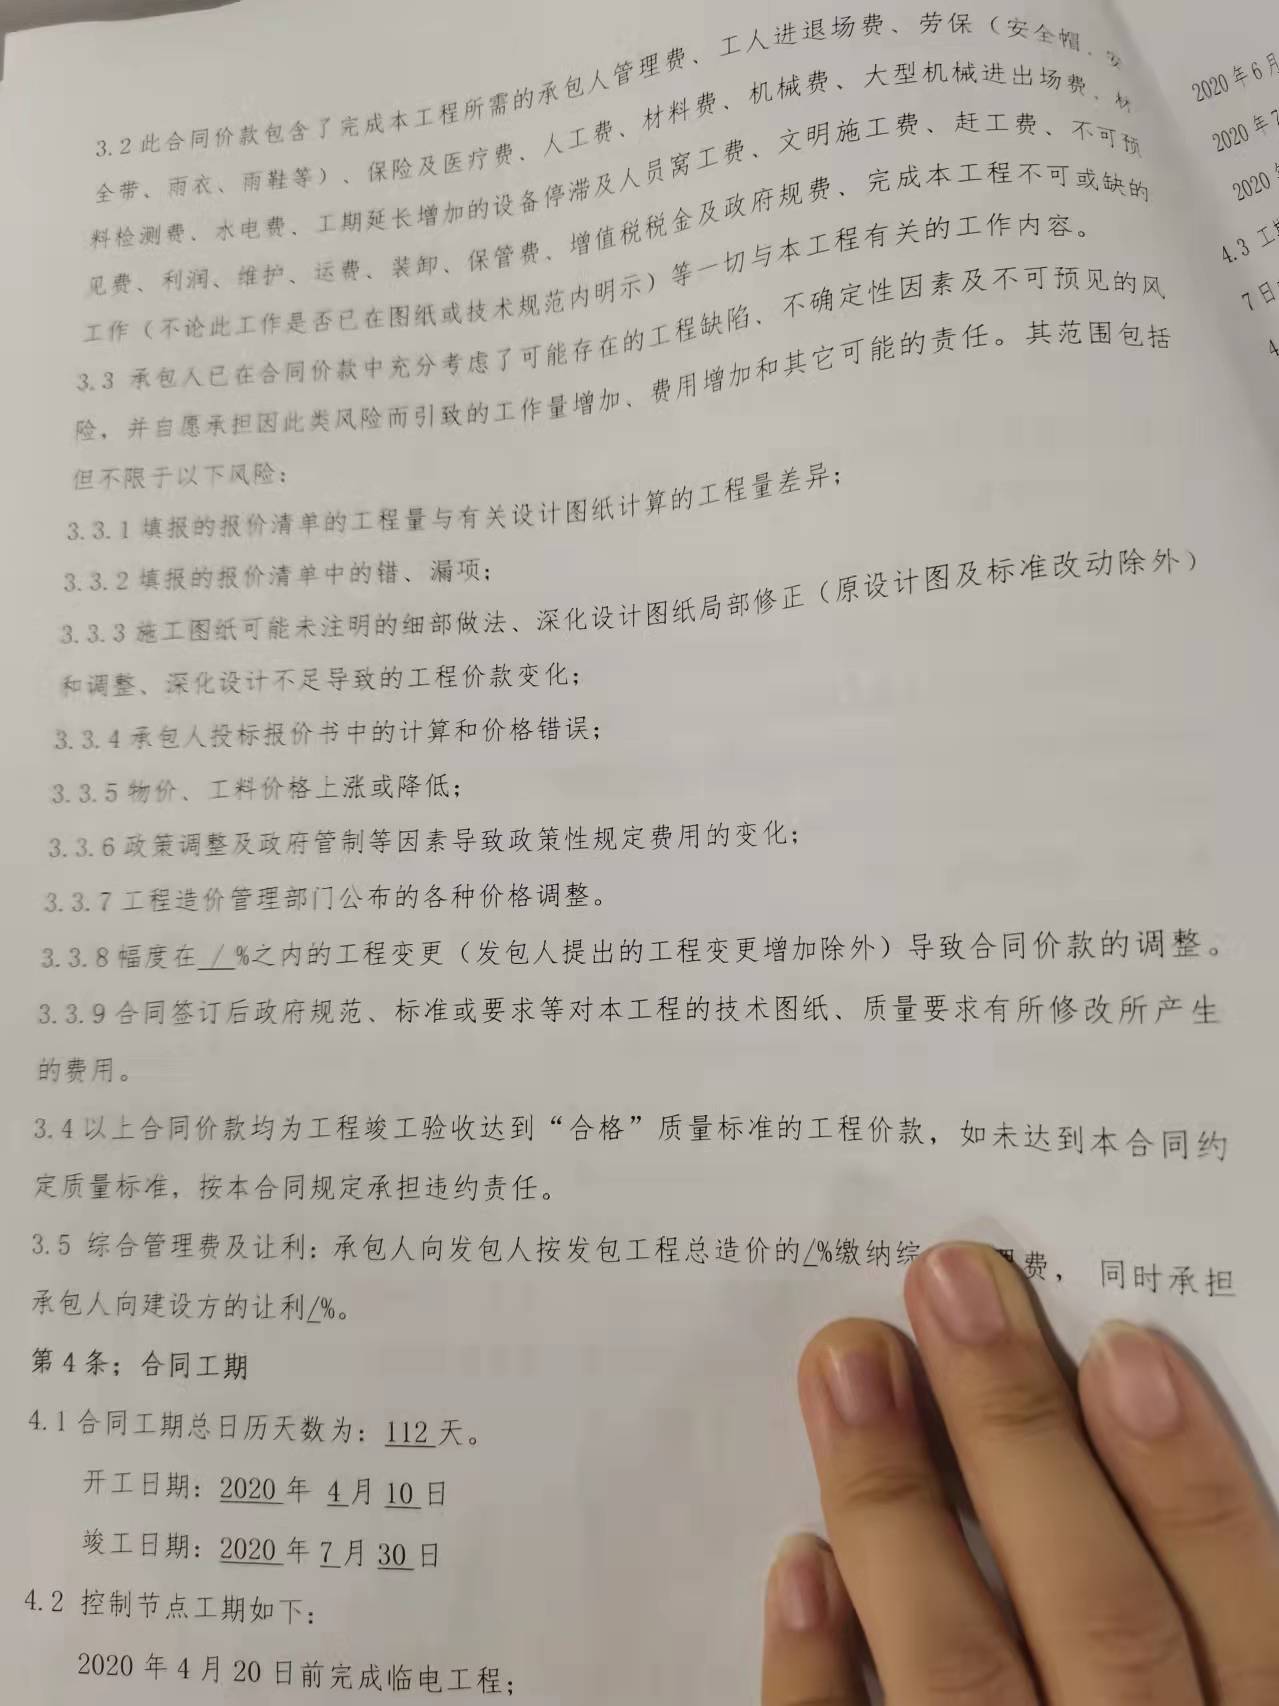 3.2 此合同价款包含了完成本工程所需的承包人管理费、工人进退场费、劳保（安全帽、安
全带、雨衣、雨鞋等）、保险及医疗费、人工费、材料费、机械费、大型机械进出场费、材
料检测费、水电费、工期延长增加的设备停滞及人员窝工费、文明施工费、赶工费、不可预
见费、利润、维护、运费、装卸、保管费、增值税税金及政府规费、完成本工程不可或缺的
工作（不论此工作是否已在图纸或技术规范内明示）等一切与本工程有关的工作内容。
3.3 承包人已在合同价款中充分考虑了可能存在的工程缺陷、不确定性因素及不可预见的风
险，并自愿承担因此类风险而引致的工作量增加、费用增加和其它可能的责任。其范围包括
但不限于以下风险：
3.3.1 填报的报价清单的工程量与有关设计图纸计算的工程量差异；
3.3.2 填报的报价清单中的错、漏项；
3.3.3 施工图纸可能未注明的细部做法、深化设计图纸局部修正（原设计图及标准改动除外）
和调整、深化设计不足导致的工程价款变化；
3.3.4 承包人投标报价书中的计算和价格错误；
3.3.5 物价、工料价格上涨或降低；
3.3.6 政策调整及政府管制等因素导致政策性规定费用的变化；
3.3.7 工程造价管理部门公布的各种价格调整。
3.3.8 幅度在 / %之内的工程变更（发包人提出的工程变更增加除外）导致合同价款的调整。
3.3.9 合同签订后政府规范、标准或要求等对本工程的技术图纸、质量要求有所修改所产生
的费用。
3.4 以上合同价款均为工程竣工验收达到“合格”质量标准的工程价款，如未达到本合同约
定质量标准，按本合同规定承担违约责任。
3.5 综合管理费及让利：承包人向发包人按发包工程总造价的/%缴纳综 理费， 同时承担
承包人向建设方的让利/%。
第 4 条；合同工期
4.1 合同工期总日历天数为：112 天。
开工日期：2020 年 4 月 10 日
竣工日期：2020 年 7 月 30 日
4.2 控制节点工期如下：
2020 年 4 月 20 日前完成临电工程；
2020 年 6 月
2020 年 7
2020
4.3 工
7 日
4